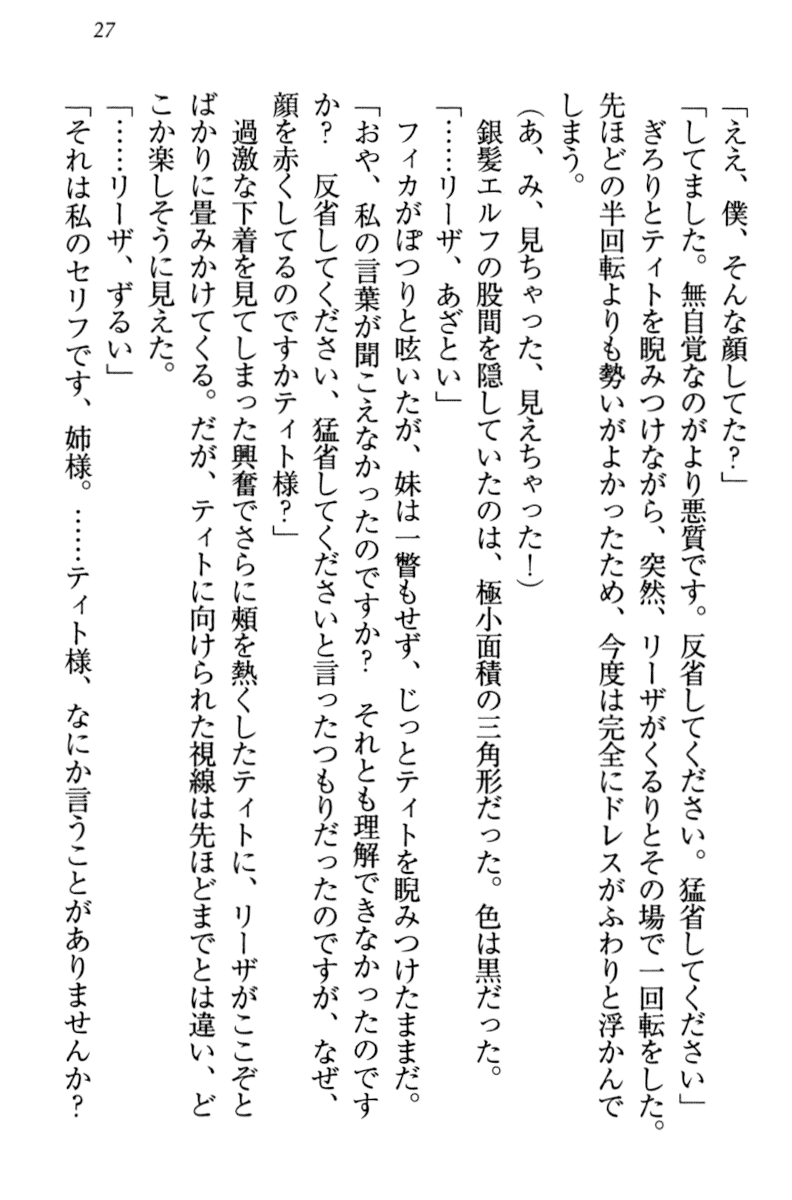 27
「ええ、僕、そんな顔してた?」
「してました。無自覚なのがより悪質です。反省してください。猛省してください」
ぎろりとティトを睨みつけながら、突然、リーザがくるりとその場で一回転をした。
先ほどの半回転よりも勢いがよかったため、今度は完全にドレスがふわりと浮かんで
しまう。
(あ、み、見ちゃった、見えちゃった!)
銀髪エルフの股間を隠していたのは、極小面積の三角形だった。色は黒だった。
「……リーザ、あざとい」
フィカがぽつりと呟いたが、妹は一瞥もせず、じっとティトを睨みつけたままだ。
「おや、私の言葉が聞こえなかったのですか? それとも理解できなかったのです
か? 反省してください、猛省してくださいと言ったつもりだったのですが、なぜ、
顔を赤くしてるのですかティト様?」
過激な下着を見てしまった興奮でさらに頬を熱くしたティトに、リーザがここぞと
ばかりに畳みかけてくる。だが、ティトに向けられた視線は先ほどまでとは違い、ど
こか楽しそうに見えた。
「……リーザ、ずるい」
「それは私のセリフです、姉様。……ティト様、なにか言うことがありませんか?